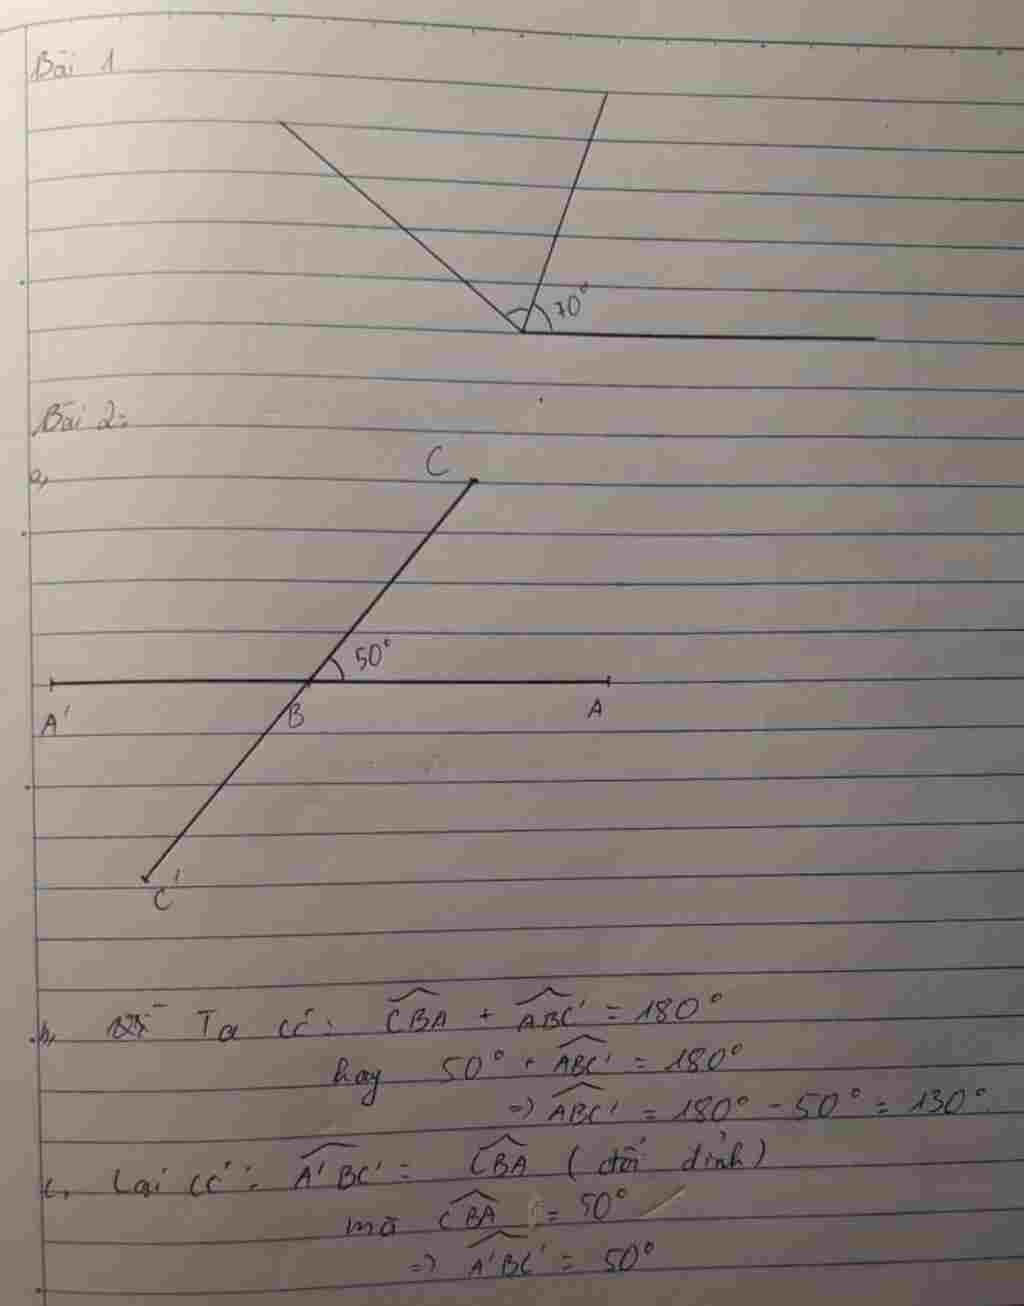 Bài 1
70°
Bài 2:
a,
C
50°
A'
B
A
C'
b, Ta có: CBA + ABC' = 180°
hay 50° + ABC' = 180°
=> ABC' = 180° - 50° = 130°
c, Lại có: A'BC' = CBA (đối đỉnh)
mà CBA = 50°
=> A'BC' = 50°